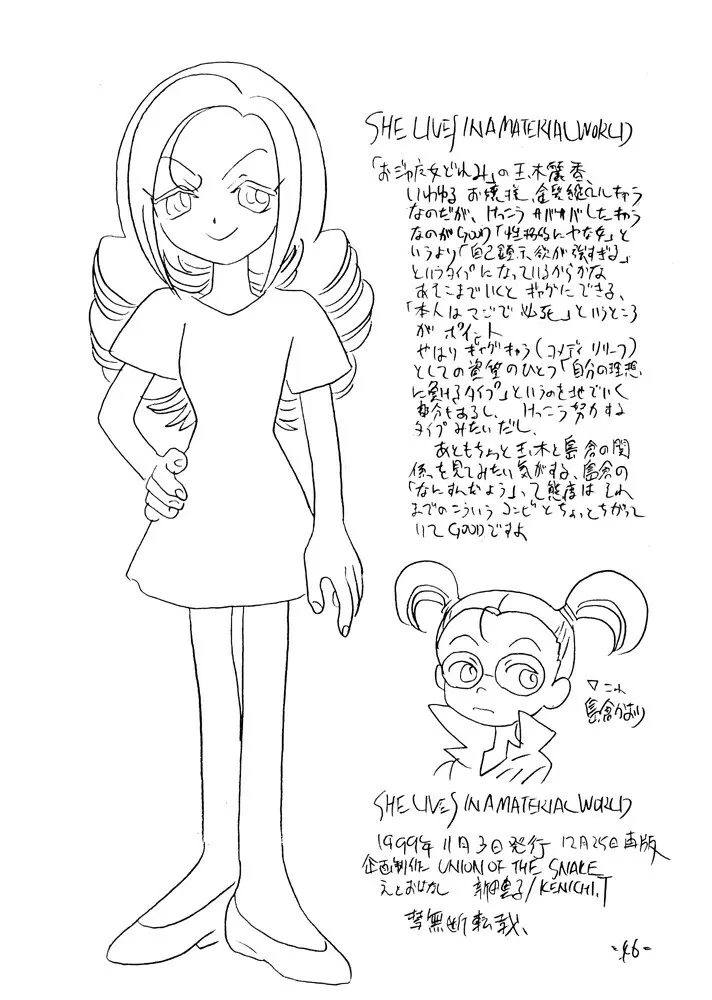 SHE LIVES IN A MATERIAL WORLD
「おジャ魔女どれみ」の玉木麗香、
いわゆるお嬢様、金髪縦ロールキャラ
なのだが、けっこうサバサバしたキャラ
なのがGOOD「性格的にヤな女」と
いうより「自己顕示欲が強すぎる」
というタイプになっているからかな
あそこまでいくとギャグにできる、
「本人はマジで必死」というところ
がポイント
やはりギャグキャラ(コメディリリーフ)
としての資質のひとつ「自分の理想
に負けるタイプ」というのを地でいく
部分もあるし、けっこう努力する
タイプみたいだし、
あともちょっと玉木と島倉の関
係を見てみたい気がする、島倉の
「なにすんだよう」って態度はそれ
までのこういうコンビとちょっとちがって
いてGOODですよ
▽これ
島倉かおり
SHE LIVES IN A MATERIAL WORLD
1999年11月3日発行 12月25日再版
企画制作 UNION OF THE SNAKE
えとおはなし /KENICHI.T
禁無断転載、
-46-